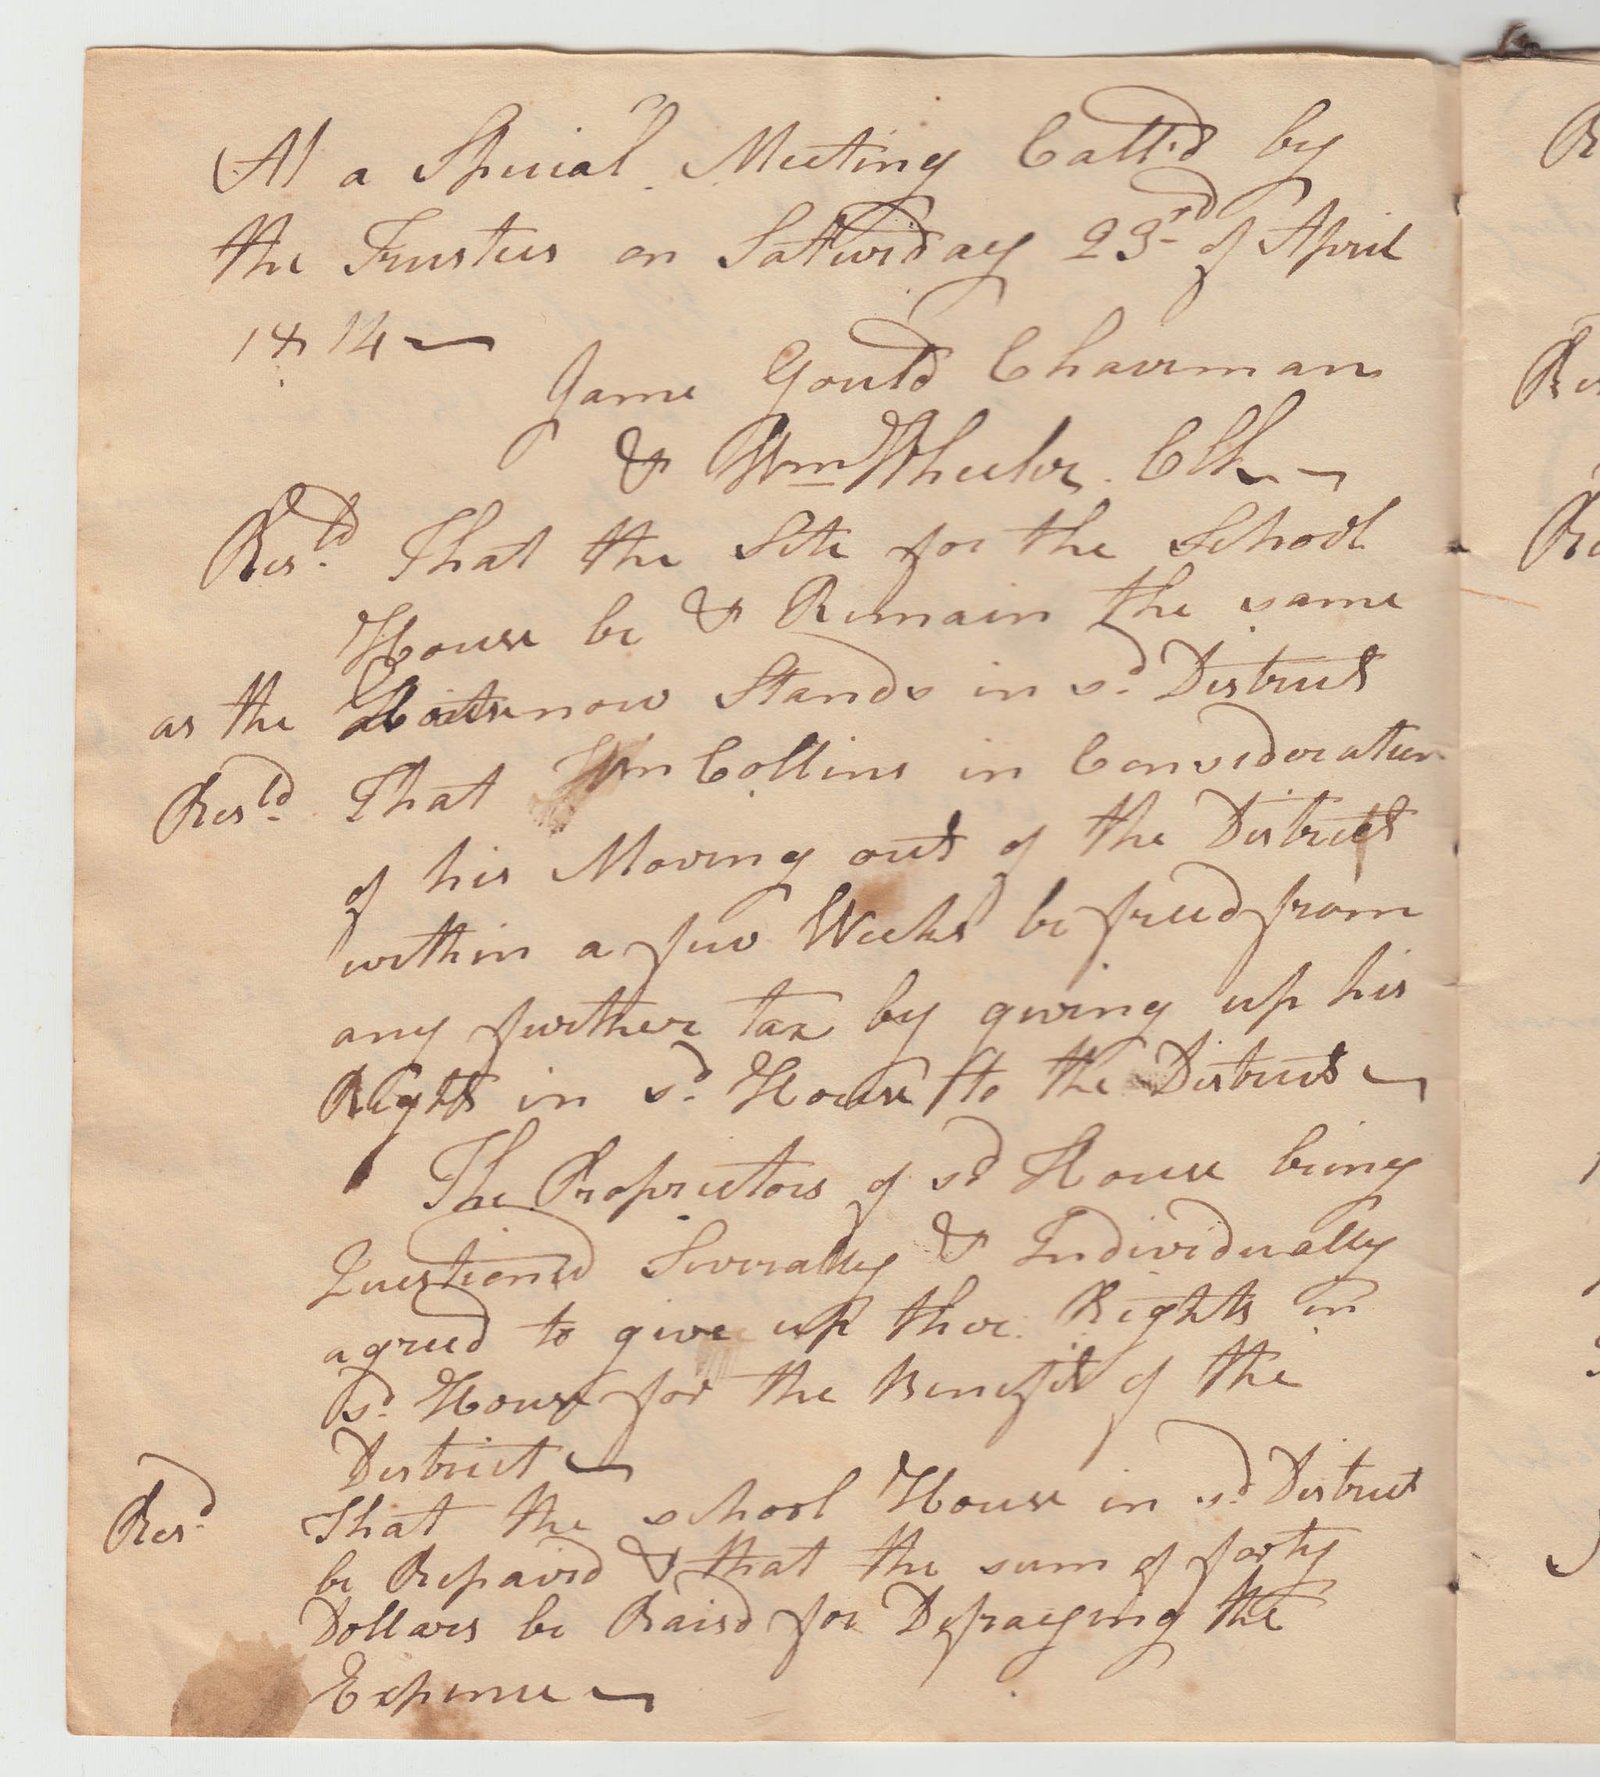 At a Special Meeting Call'd by
the Trustees on Saturiday 23rd of April
1814
Jame Gould Chairman
& Wm Wheeler Clk
Resld That the Site for the School
House be & Remain the same
as the House now Stands in sd District
Resld That Wm Collins in Consideration
of his Moving out of the District
within a few Weeks be freed from
any further tax by giving up his
Right in sd House to the District
The Proprietors of sd House being
Questiond Severally & Individually
agreed to give up their Rights in
sd House for the Benefit of the
District
Resd That the school House in sd District
be Repaird & that the sum of forty
Dollars be Raisd for Defraying the
Expense
R
Re
Re